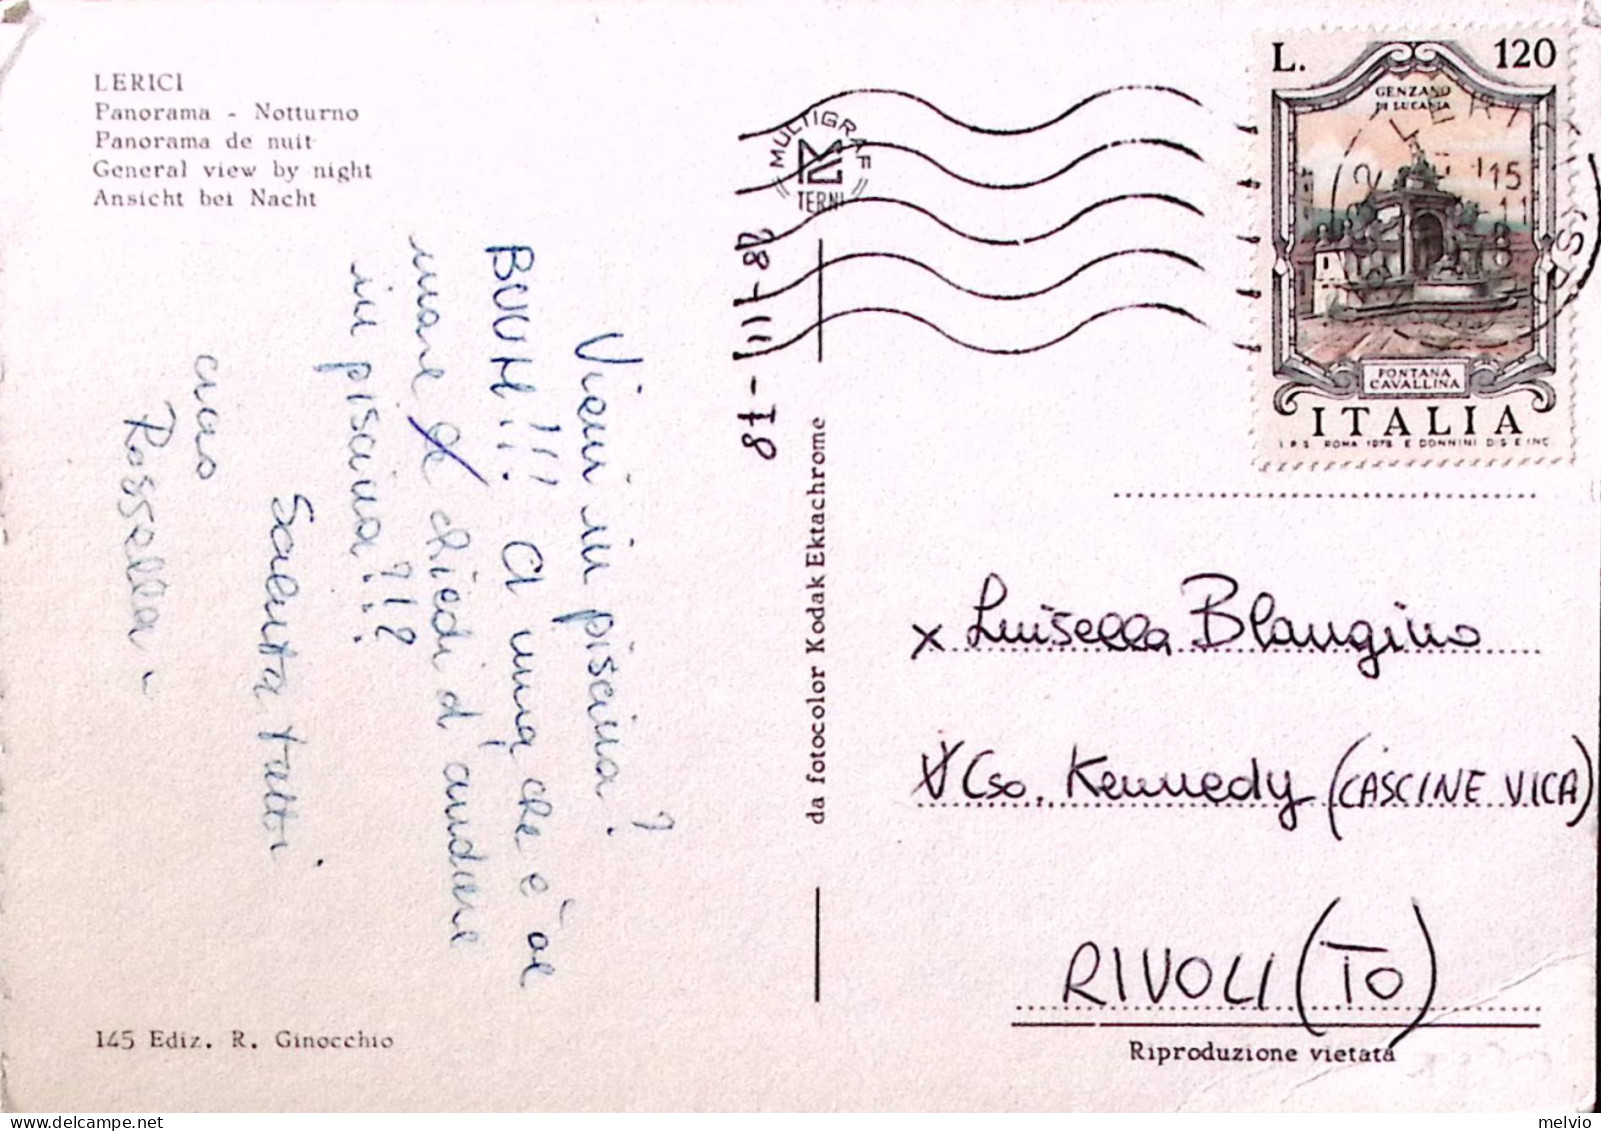 LERICI
Panorama - Notturno
Panorama de nuit
General view by night
Ansicht bei Nacht
Vieni in piscina?
BOUH!!! A
che è al
mare chiedi d'andare
in piscina!?!?
Saluta tutti
ciao
Rossella
145 Ediz. R. Ginocchio
MULTIGRAF
TERNI
28-11-78
da fotocolor Kodak Ektachrome
L. 120
GENZANO
DI LUCANIA
FONTANA
CAVALLINA
ITALIA
I.P.S. ROMA 1978 E DONNINI DIS E INC
LERICI
15
11
78
Luisella Blangino
Cso. Kennedy (CASCINE VICA)
RIVOLI (TO)
Riproduzione vietata
melvio